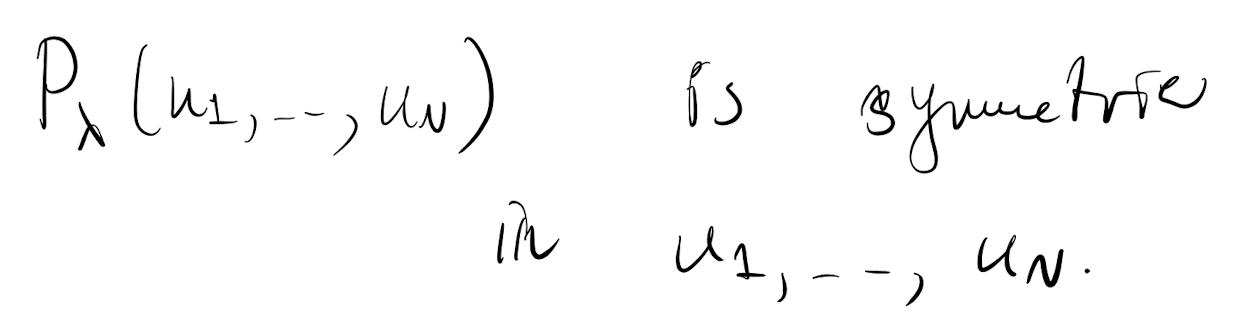 P_λ(u_1, ..., u_N) is symmetric
in u_1, ..., u_N.